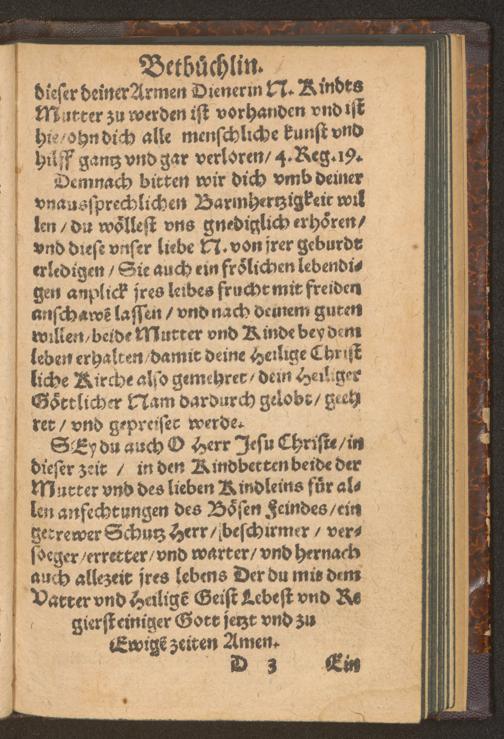 Betbüchlin.
dieser deiner Armen Dienerin N. Kindts
Mutter zu werden ist vorhanden vnd ist
hie/ohn dich alle menschliche kunst vnd
hilff gantz vnd gar verloren/ 4. Reg. 19.
Demnach bitten wir dich vmb deiner
vnaussprechlichen Barmhertzigkeit wil
len/ du wöllest vns gnediglich erhören/
vnd diese vnser liebe N. von jrer geburdt
erledigen/ Sie auch ein frölichen lebendi-
gen anplick jres leibes frucht mit freiden
anschawẽ lassen / vnd nach deinem guten
willen/beide Mutter vnd Kinde bey dem
leben erhalten/damit deine Heilige Christ
liche Kirche also gemehret/ dein Heiliger
Göttlicher Nam dardurch gelobt/ geeh
ret/ vnd gepreiset werde.
SEy du auch O Herr Jesu Christe/in
dieser zeit / in den Kindbetten beide der
Mutter vnd des lieben Kindleins für al-
len anfechtungen des Bösen Feindes/ein
getrewer Schutz Herr/beschirmer / ver-
söeger/erretter/vnd warter/vnd hernach
auch allezeit jres lebens Der du mit dem
Vatter vnd Heiligẽ Geist Lebest vnd Re
gierst einiger Gott jetzt vnd zu
Ewigẽ zeiten Amen.
D 3 Ein